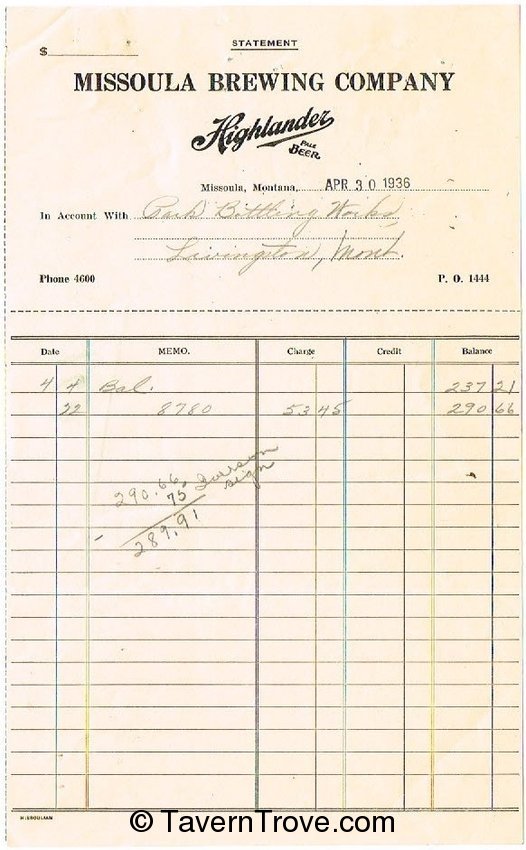 STATEMENT
$
MISSOULA BREWING COMPANY
Highlander
PALE BEER
Missoula, Montana, APR 30 1936
In Account With Park Bottling Works,
Livingston, Mont.
Phone 4600 P. O. 1444
Date MEMO. Charge Credit Balance
4 4 Bal. 237 21
22 8780 53 45 290 66
290.66
75 sign
289.91
MISSOULIAN
© TavernTrove.com